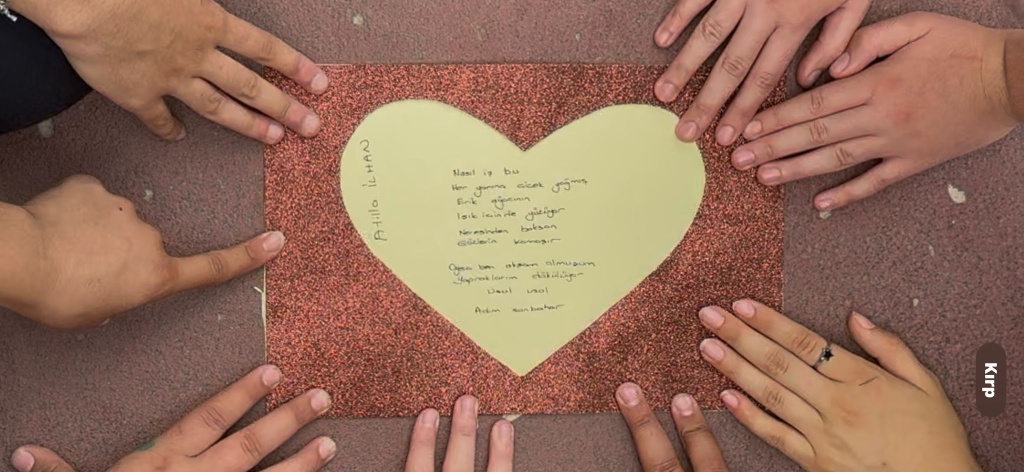 Attila İLHAN
Nasıl iş bu
Her yanına çiçek yağmış
Erik ağacının
Işık içinde yüzüyor
Neresinden baksan
Gözlerin kamaşır
Oysa ben akşam olmuşum
Yapraklarım dökülüyor
Usul usul
Adım sonbahar
Kırp